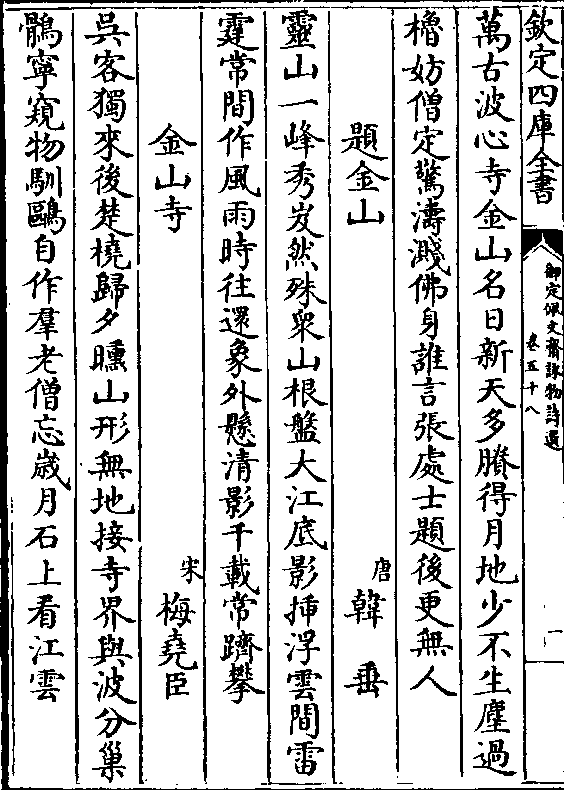 欽定四庫全書
御定佩文齋詠物詩選
卷五十八
一
萬古波心寺金山名日新天多賸得月地少不生塵過
櫓妨僧定驚濤濺佛身誰言張處士題後更無人
題金山
唐 韓垂
靈山一峰秀岌然殊衆山根盤大江底影揷浮雲間雷
霆常間作風雨時往還象外懸清影千載常躋攀
金山寺
宋 梅堯臣
吳客獨來後楚橈歸夕曛山形無地接寺界與波分巢
鶻寧窺物馴鷗自作羣老僧忘歲月石上看江雲